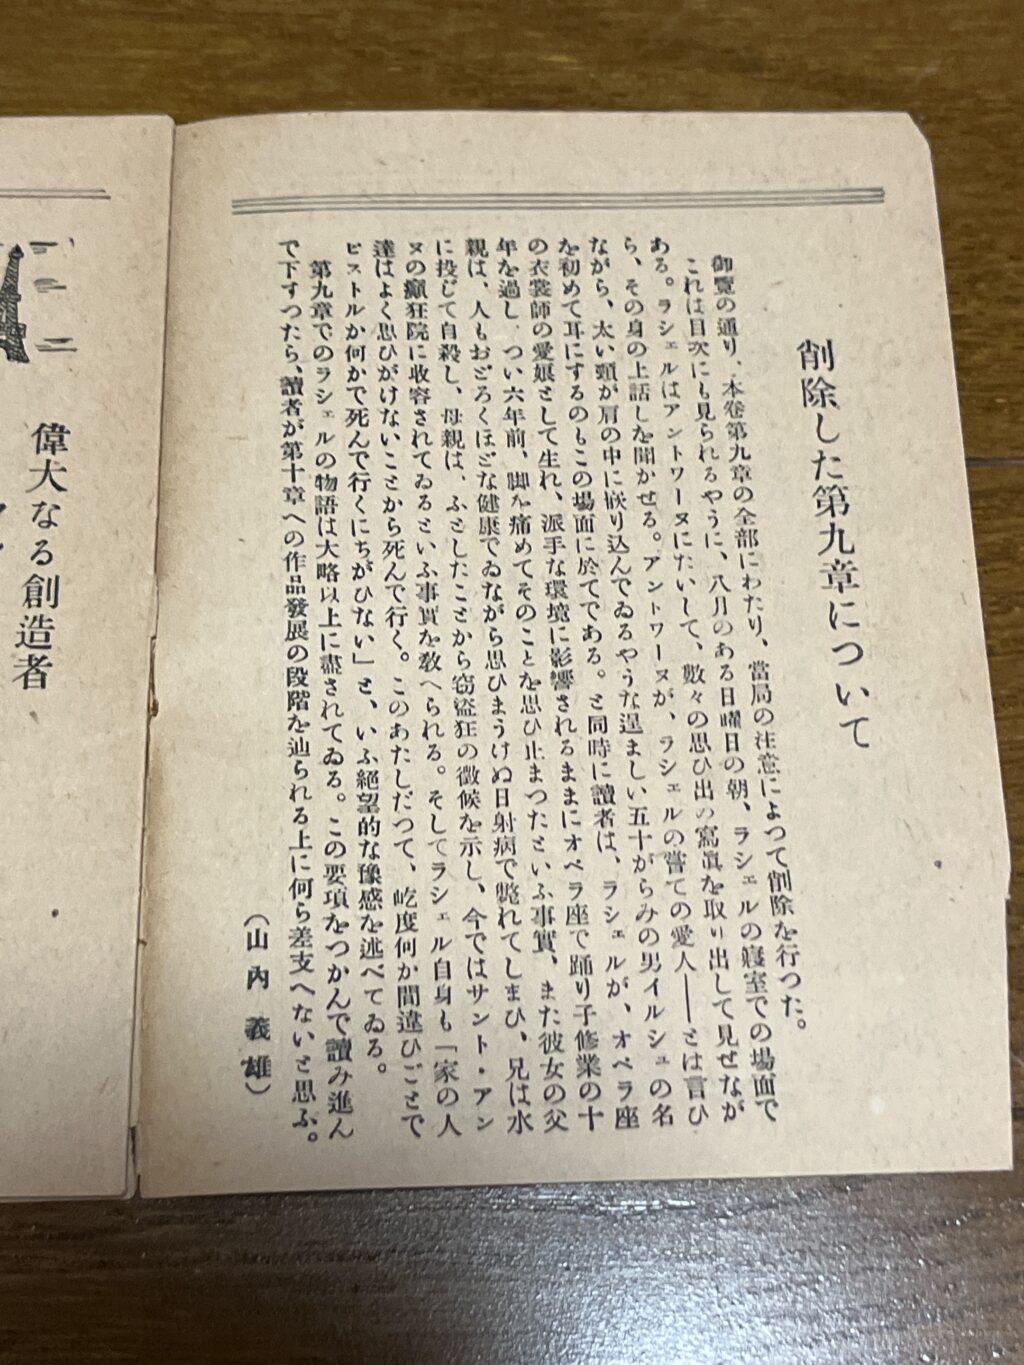 削除した第九章について
御覽の通り、本卷第九章の全部にわたり、當局の注意によつて削除を行つた。
これは目次にも見られるやうに、八月のある日曜日の朝、ラシェルの寢室での場面で
ある。ラシェルはアントワーヌにたいして、數々の思ひ出の寫眞を取り出して見せなが
ら、その身の上話しを聞かせる。アントワーヌが、ラシェルの嘗ての愛人――とは言ひ
ながら、太い頸が肩の中に嵌り込んでゐるやうな逞ましい五十がらみの男イルシュの名
を初めて耳にするのもこの場面に於てである。と同時に讀者は、ラシェルが、オペラ座
の衣裳師の愛娘として生れ、派手な環境に影響されるままにオペラ座で踊り子修業の十
年を過し、つい六年前、脚を痛めてそのことを思ひ止まつたといふ事實、また彼女の父
親は、人もおどろくほどな健康でゐながら思ひまうけぬ日射病で斃れてしまひ、兄は水
に投じて自殺し、母親は、ふとしたことから窃盜狂の徵候を示し、今ではサント・アン
ヌの癲狂院に收容されてゐるといふ事實を敎へられる。そしてラシェル自身も「家の人
達はよく思ひがけないことから死んで行く。このあたしだつて、屹度何か間違ひごとで
ピストルか何かで死んで行くにちがひない」と、いふ絕望的な豫感を述べてゐる。
第九章でのラシェルの物語は大略以上に盡されてゐる。この要項をつかんで讀み進ん
で下すつたら、讀者が第十章への作品發展の段階を辿られる上に何ら差支へないと思ふ。
（山內義雄）
偉大なる創造者